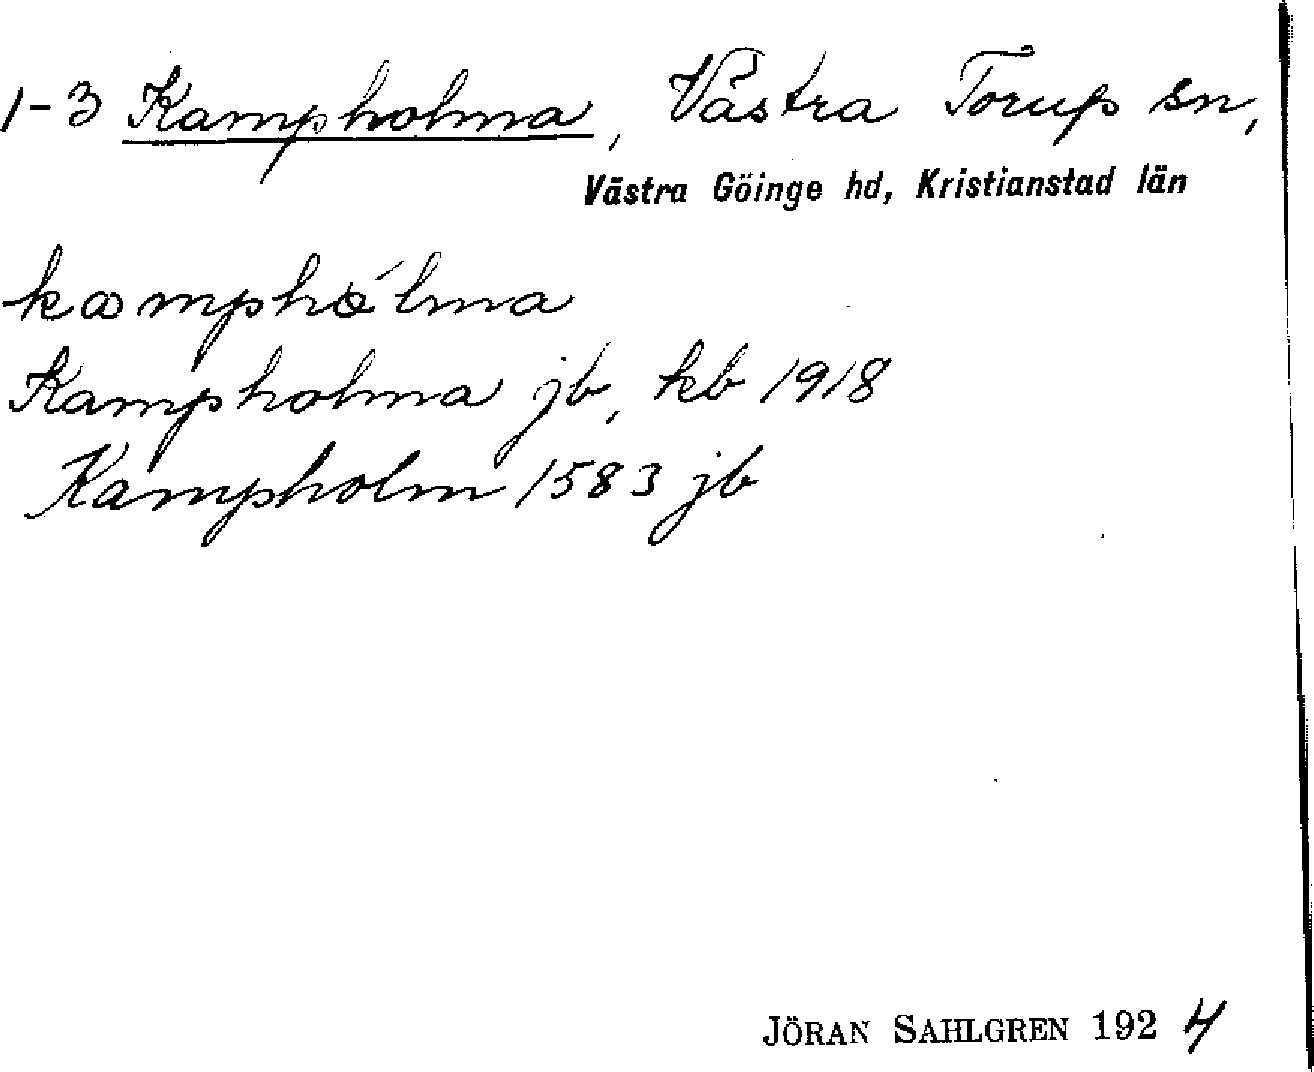 1-3 Kampholma, Västra Torup sn,
Västra Göinge hd, Kristianstad län
kamphólma
Kampholma jb, kb 1918
Kampholm 1583 jb
JÖRAN SAHLGREN 1924